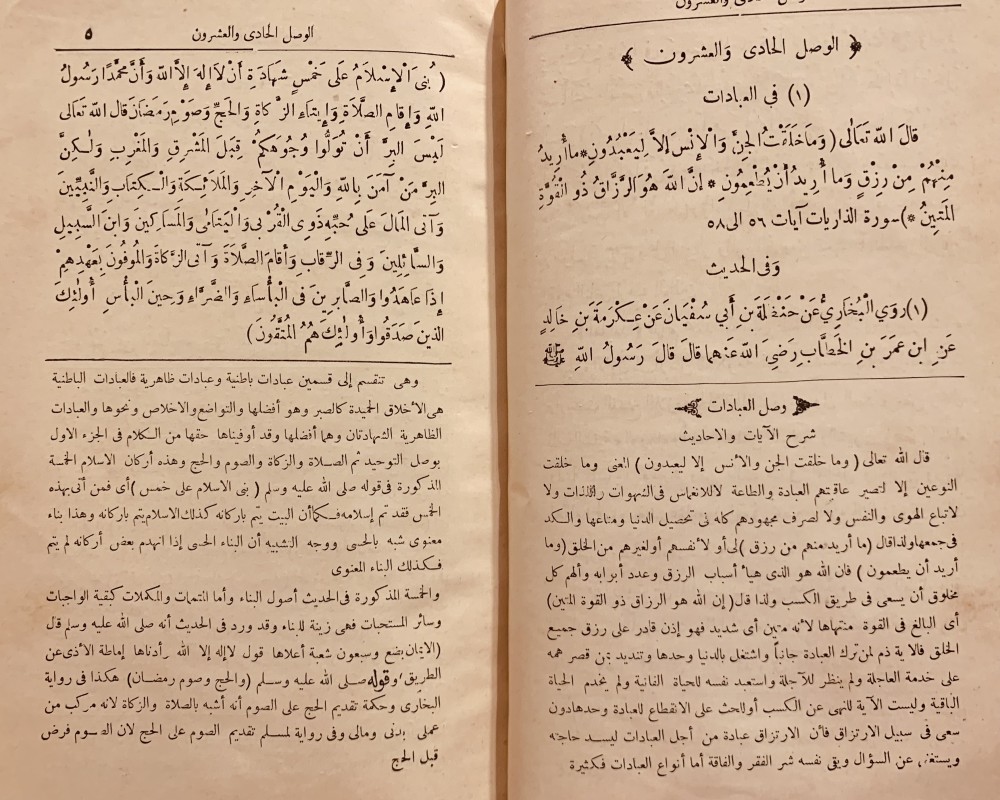 ﴿ الوصل الحادى والعشرون ﴾
(١) فى العبادات
قالَ اللهُ تَعَالٰى ( وَمَا خَلَقْتُ الجِنَّ وَالْإِنْسَ إِلاَّ لِيَعْبُدُونِ * مَا أُرِيدُ
مِنْهُمْ مِنْ رِزْقٍ وَمَا أُرِيدُ أَنْ يُطْعِمُونِ * إِنَّ اللهَ هُوَ الرَّزَّاقُ ذُو الْقُوَّةِ
المَتِينُ * ) سورة الذاريات آيات ٥٦ الى ٥٨
وَفى الحديث
(١) رَوَي الْبُخَارِيُّ عَنْ حَنْظَلَةَ بنِ أَبي سُفْيَانَ عَنْ عِكْرِمَةَ بنِ خَالِدٍ
عَنِ ابنِ عمَرَ بنِ الخَطَّابِ رَضِيَ اللهُ عَنْهما قَالَ قالَ رَسُولُ اللهِ ﷺ
وصل العبادات
شرح الآيات والاحاديث
قال الله تعالى ( وما خلقت الجن والأنس إلا ليعبدون ) المعنى وما خلقت
النوعين إلا لتصير عاقبتهم العبادة والطاعة لا للانغماس فى الشهوات واللذات ولا
لاتباع الهوى والنفس ولا لصرف مجهودهم كله فى تحصيل الدنيا ومتاعها والكد
فى جمعها ولذا قال ( ما أريد منهم من رزق ) أى لا أو لأنفسهم أو لغيرهم من الخلق (وما
أريد أن يطعمون ) فان الله هو الذى هيأ أسباب الرزق وعدد أبوابه وألهم كل
مخلوق أن يسعى فى طريق الكسب ولذا قال ( إن الله هو الرزاق ذو القوة المتين)
أى البالغ فى القوة منتهاها لأنه متين أى شديد فهو إذن قادر على رزق جميع
الخلق فالآية ذم لمن ترك العبادة جانباً واشتغل بالدنيا وحدها وتنديد بمن قصر همه
على خدمة العاجلة ولم ينظر للآجلة واستعبد نفسه للحياة الفانية ولم يخدم الحياة
الباقية وليست الآية للنهى عن الكسب أو للحث على الانقطاع للعبادة وحدها دون
سعى فى سبيل الارتزاق فأن الارتزاق عبادة من أجل العبادات ليسد حاجته
ويستغنى عن السؤال ويقى نفسه شر الفقر والفاقة أما أنواع العبادات فكثيرة
الوصل الحادى والعشرون ٥
( بُنىَ الْإِسْلَامُ عَلَى خَمْسٍ شَهَادَةِ أَنْ لَا إِلهَ إِلاَّ اللهُ وَأَنَّ مُحَمَّدًا رَسُولُ
اللهِ وَإِقَامِ الصَّلَاةِ وَإِيتَاءِ الزَّكَاةِ وَالحَجِّ وَصَوْمِ رَمَضَانَ قالَ اللهُ تعَالى
لَيْسَ البِرَّ أَنْ تُوَلُّوا وُجُوهَكُمْ قِبَلَ المَشْرِقِ وَالمَغْرِبِ وَلٰكِنَّ
البِرَّ مَنْ آمَنَ بِاللهِ وَالْيَوْمِ الْآخِرِ وَالمَلَائِكَةِ وَالْكِتَابِ وَالنَّبِيِّينَ
وَآتى المَالَ عَلَى حُبِّهِ ذَوِى الْقُرْبى وَالْيَتَامٰى وَالمَسَاكِينَ وَابنَ السَّبِيلِ
وَالسَّائِلِينَ وَفى الرِّقابِ وَأَقامَ الصَّلَاةَ وَآتى الزَّكاةَ وَالمُوفُونَ بِعَهْدِهِمْ
إِذَا عَاهَدُوا وَالصَّابِرِينَ فى الْبَأْسَاءِ وَالضَّرَّاءِ وَحِينَ الْبَأْسِ أُولٰئِكَ
الذينَ صَدَقُوا وَأُولٰئِكَ هُمُ المُتَّقُونَ )
وهى تنقسم إلى قسمين عبادات باطنية وعبادات ظاهرية فالعبادات الباطنية
هى الأخلاق الحميدة كالصبر وهو أفضلها والتواضع والاخلاص ونحوها والعبادات
الظاهرية الشهادتان وهما أفضلها وقد أوفيناها حقها من الكلام فى الجزء الاول
بوصل التوحيد ثم الصلاة والزكاة والصوم والحج وهذه أركان الاسلام الخمسة
المذكورة فى قوله صلى الله عليه وسلم ( بنى الاسلام على خمس ) أى فمن أتى بهذه
الخمس فقد تم إسلامه فكما أن البيت يتم باركانه كذلك الاسلام يتم باركانه وهذا بناء
معنوى شبه بالحسى ووجه التشبيه أن البناء الحسى إذا انهدم بعض أركانه لم يتم
فكذلك البناء المعنوى
والخمسة المذكورة فى الحديث أصول البناء وأما المتممات والمكملات كبقية الواجبات
وسائر المستحبات فهى زينة للبناء وقد ورد فى الحديث أنه صلى الله عليه وسلم قال
(الايمان بضع وسبعون شعبة أعلاها قول لا إله إلا الله وأدناها إماطة الأذى عن
الطريق) وقوله صلى الله عليه وسلم (والحج وصوم رمضان) هكذا فى رواية
البخارى وحكمة تقديم الحج على الصوم أنه أشبه بالصلاة والزكاة لانه مركب من
عملى بدنى ومالى وفى رواية لمسلم تقديم الصوم على الحج لان الصوم فرض
قبل الحج